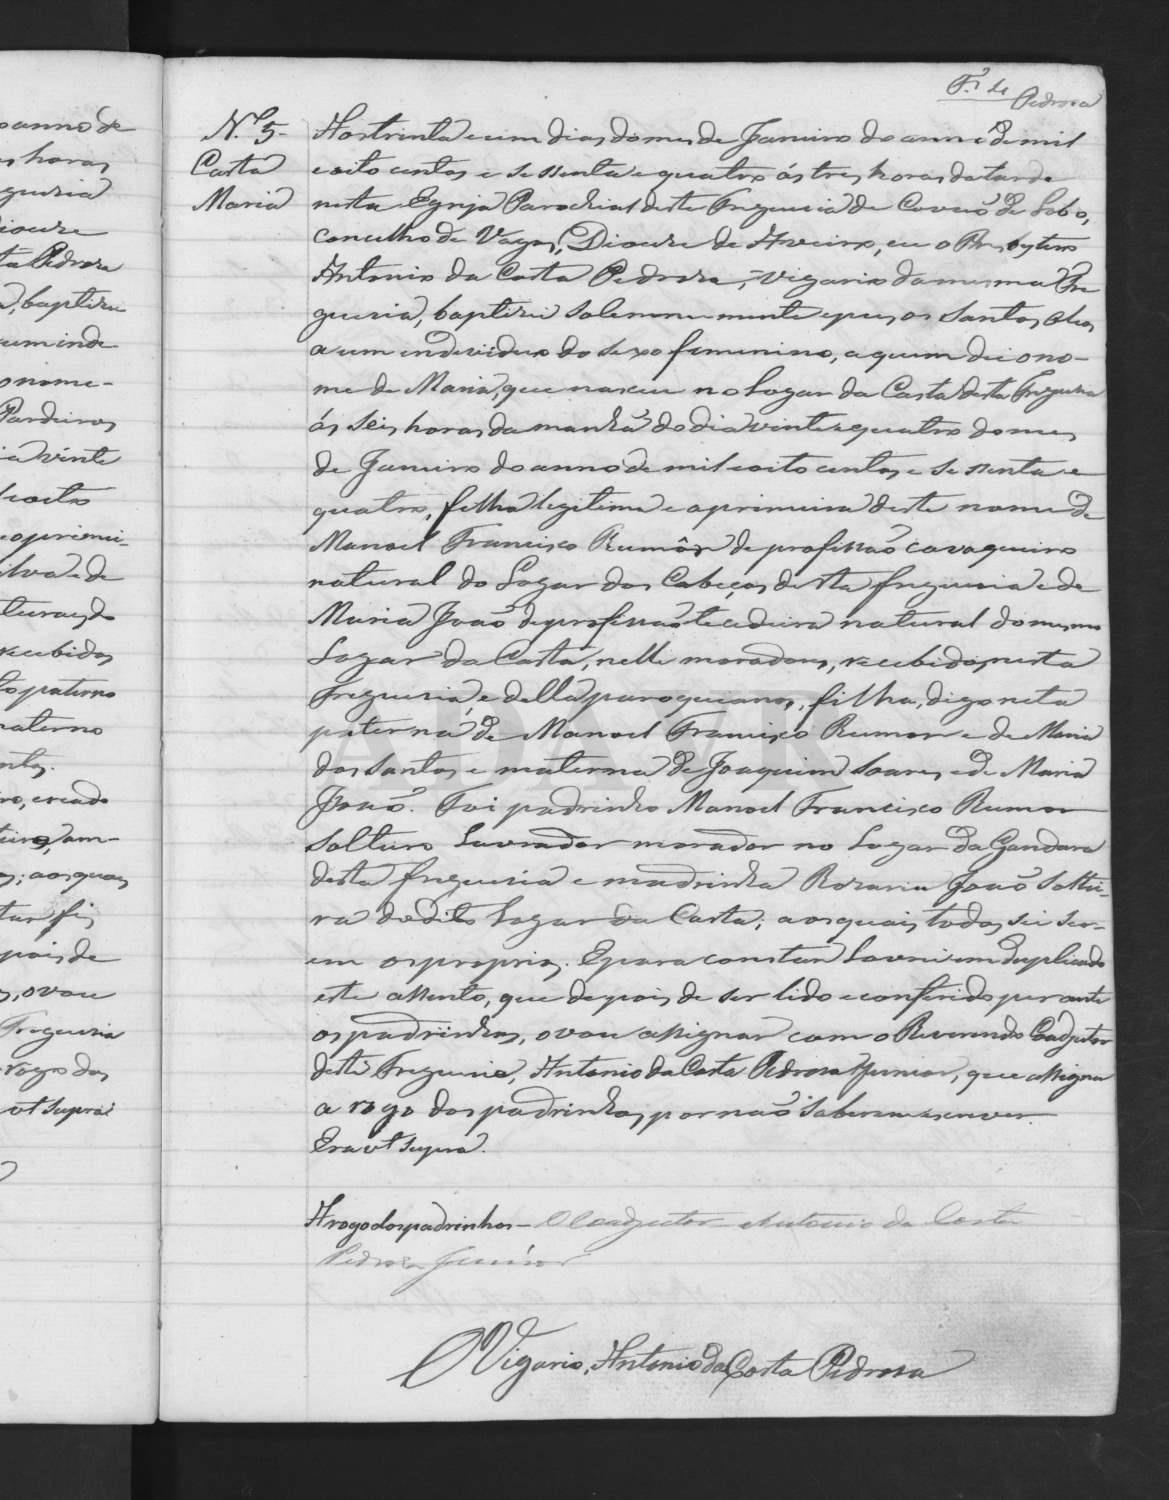 Pedrosa
N.º 5-
Costa
Maria
Aos trinta e um dias do mes de Janeiro do anno de mil
e oito centos e sessenta e quatro ás tres horas da tarde
nesta Egreja Parochial desta Freguesia de Covão de Lobo,
concelho de Vagos, Diocese de Aveiro, eu o Presbytero
Antonio da Costa Pedrosa, Vigario da mesma Fre
guesia, baptizei solemnemente e pus os Santos Oleos
a um individuo do sexo femenino, a quem dei o no-
me de Maria, que nasceu no Lugar da Costa desta Freguesia
ás seis horas da manhã do dia vinte e quatro do mes
de Janeiro do anno de mil e oito centos e sessenta e
quatro, filha legitima e a primeira deste nome de
Manoel Francisco Rumôr de profissão cavaqueiro
natural do Lugar das Cabeças desta freguesia e de
Maria João de profissão tecedeira natural do mesmo
Lugar da Costa, nelle moradores, recebidos nesta
Freguesia, e della paroquianos, filha, digo neta
paterna de Manoel Francisco Rumor e de Maria
dos Santos e materna de Joaquim Soares e de Maria
João. Foi padrinho Manoel Francisco Rumor
Solteiro Lavrador morador no Lugar da Gandara
desta freguesia e madrinha Rozaria João soltei-
ra do dito Lugar da Costa; aos quais todos sei ser-
em os proprios. E para constar Lavrei em duplicado
este assento, que depois de ser lido e conferido perante
os padrinhos, o vou assignar com o Reverendo Coadjutor
desta Freguesia, Antonio da Costa Pedrosa Junior, que assigna
a rogo dos padrinhos por não saberem escrever.
Era ut supra.
A rogo dos padrinhos - O Coadjutor Antonio da Costa
Pedrosa Junior
O Vigario, Antonio da Costa Pedrosa
o anno de
s horas
guesia
Diocese
ta Pedrosa
a, baptizei
um indi
o nome-
Pardeiros
ia vinte
e oito
e o primei-
ilva e de
turaes do
recebidos
to paterno
materno
ntes.
ro, creado
teiro, am-
s; aos quaes
tar fiz
pois de
s, o vou
Freguesia
rogo dos
ut supra